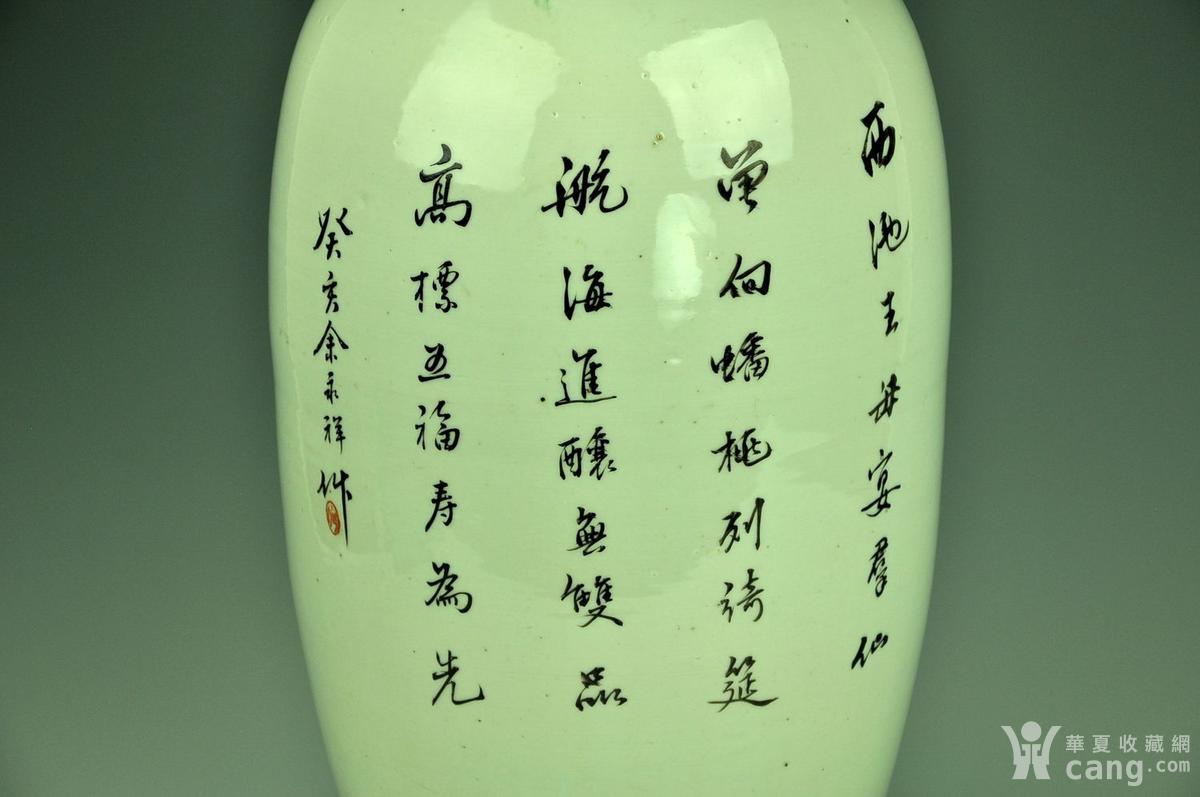 西池王母宴羣仙
曾向蟠桃列綺筵
航海進釀無雙品
高標五福寿為先
癸亥余永祥作
華夏收藏網
cang.com